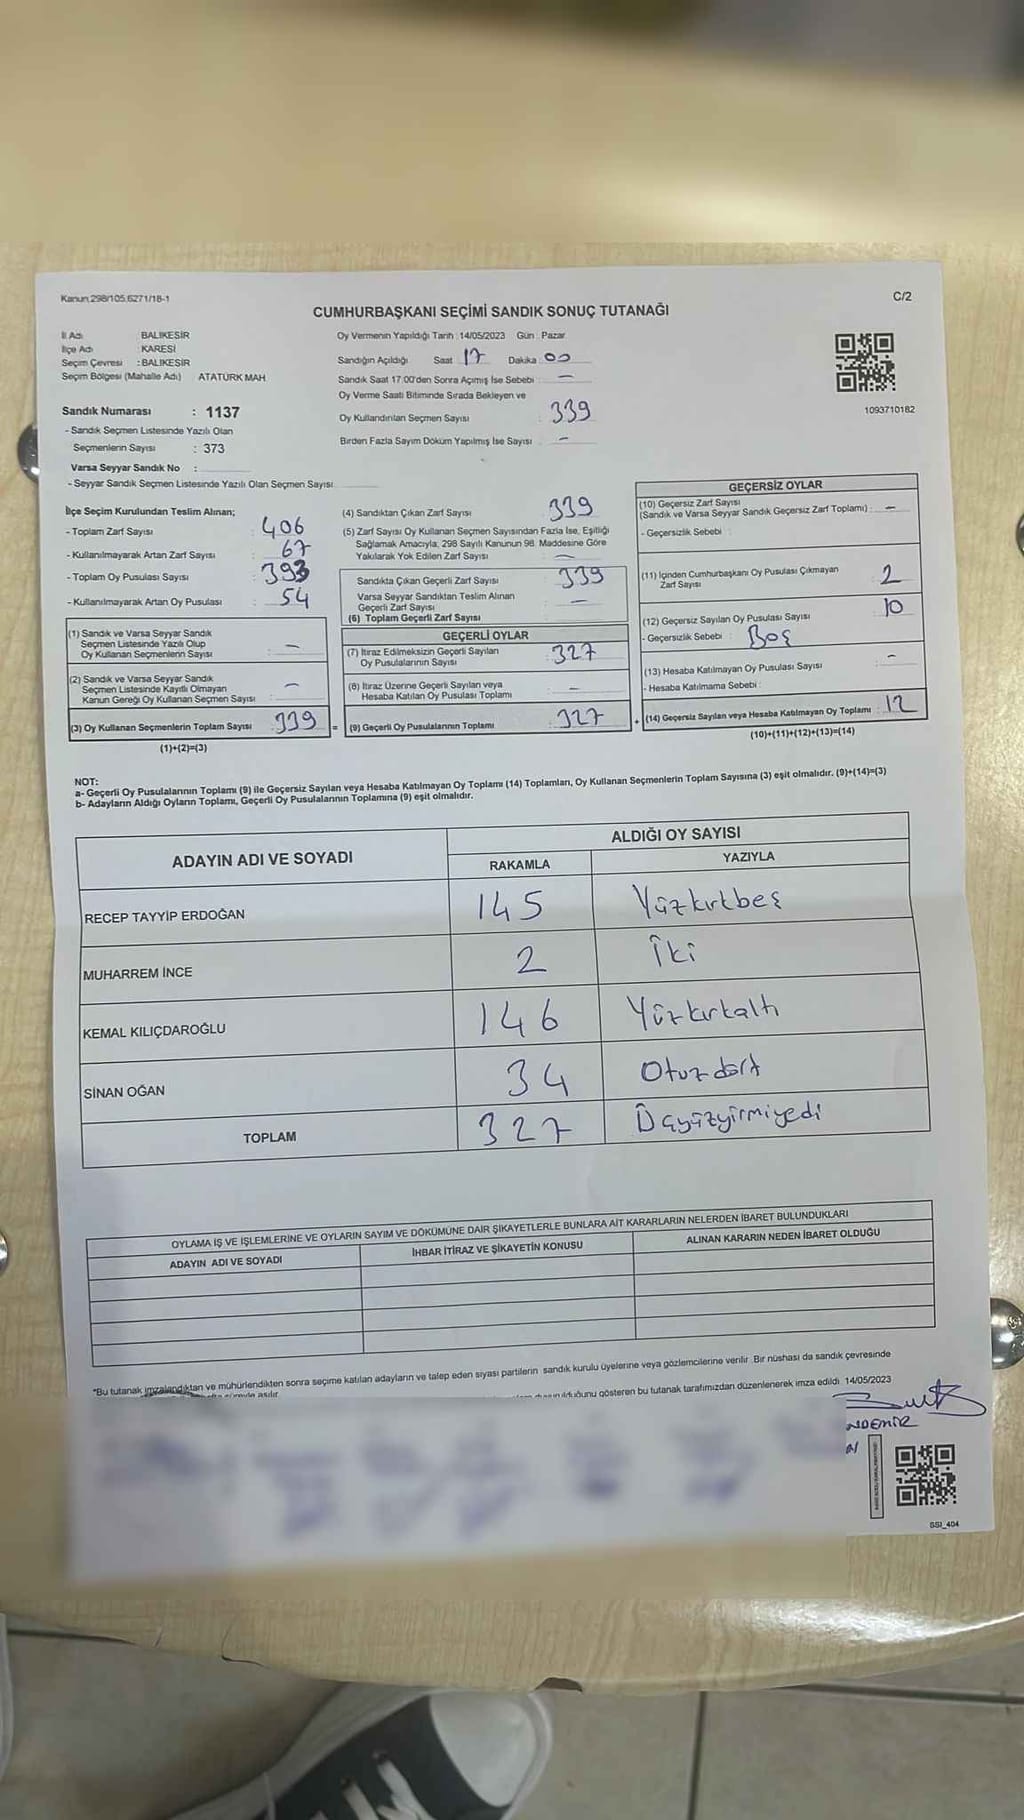 Kanun;298/105,6271/18-1
C/2
CUMHURBAŞKANI SEÇİMİ SANDIK SONUÇ TUTANAĞI
İl Adı : BALIKESİR
İlçe Adı : KARESİ
Seçim Çevresi : BALIKESİR
Seçim Bölgesi (Mahalle Adı) ATATÜRK MAH
Sandık Numarası : 1137
- Sandık Seçmen Listesinde Yazılı Olan
Seçmenlerin Sayısı : 373
Varsa Seyyar Sandık No :
- Seyyar Sandık Seçmen Listesinde Yazılı Olan Seçmen Sayısı
Oy Vermenin Yapıldığı Tarih : 14/05/2023 Gün : Pazar
Sandığın Açıldığı Saat 17 Dakika : 00
Sandık Saat 17:00'den Sonra Açılmış İse Sebebi : —
Oy Verme Saati Bitiminde Sırada Bekleyen ve
Oy Kullandırılan Seçmen Sayısı : 339
Birden Fazla Sayım Döküm Yapılmış İse Sayısı : —
1093710182
İlçe Seçim Kurulundan Teslim Alınan;
- Toplam Zarf Sayısı : 406
- Kullanılmayarak Artan Zarf Sayısı : 67
- Toplam Oy Pusulası Sayısı : 393
- Kullanılmayarak Artan Oy Pusulası : 54
(1) Sandık ve Varsa Seyyar Sandık
Seçmen Listesinde Yazılı Olup
Oy Kullanan Seçmenlerin Sayısı : —
(2) Sandık ve Varsa Seyyar Sandık
Seçmen Listesinde Kayıtlı Olmayan
Kanun Gereği Oy Kullanan Seçmen Sayısı : —
(3) Oy Kullanan Seçmenlerin Toplam Sayısı : 339 =
(1)+(2)=(3)
(4) Sandıktan Çıkan Zarf Sayısı : 339
(5) Zarf Sayısı Oy Kullanan Seçmen Sayısından Fazla İse, Eşitliği
Sağlamak Amacıyla, 298 Sayılı Kanunun 98. Maddesine Göre
Yakılarak Yok Edilen Zarf Sayısı : —
Sandıkta Çıkan Geçerli Zarf Sayısı : 339
Varsa Seyyar Sandıktan Teslim Alınan
Geçerli Zarf Sayısı : —
(6) Toplam Geçerli Zarf Sayısı
GEÇERLİ OYLAR
(7) İtiraz Edilmeksizin Geçerli Sayılan
Oy Pusulalarının Sayısı : 327
(8) İtiraz Üzerine Geçerli Sayılan veya
Hesaba Katılan Oy Pusulası Toplamı : —
(9) Geçerli Oy Pusulalarının Toplamı : 327 +
GEÇERSİZ OYLAR
(10) Geçersiz Zarf Sayısı
(Sandık ve Varsa Seyyar Sandık Geçersiz Zarf Toplamı) : —
- Geçersizlik Sebebi :
(11) İçinden Cumhurbaşkanı Oy Pusulası Çıkmayan
Zarf Sayısı : 2
(12) Geçersiz Sayılan Oy Pusulası Sayısı : 10
- Geçersizlik Sebebi : Boş
(13) Hesaba Katılmayan Oy Pusulası Sayısı : —
- Hesaba Katılmama Sebebi :
(14) Geçersiz Sayılan veya Hesaba Katılmayan Oy Toplamı : 12
(10)+(11)+(12)+(13)=(14)
NOT:
a- Geçerli Oy Pusulalarının Toplamı (9) ile Geçersiz Sayılan veya Hesaba Katılmayan Oy Toplamı (14) Toplamları, Oy Kullanan Seçmenlerin Toplam Sayısına (3) eşit olmalıdır. (9)+(14)=(3)
b- Adayların Aldığı Oyların Toplamı, Geçerli Oy Pusulalarının Toplamına (9) eşit olmalıdır.
ADAYIN ADI VE SOYADI ALDIĞI OY SAYISI
RAKAMLA YAZIYLA
RECEP TAYYİP ERDOĞAN 145 Yüzkırkbeş
MUHARREM İNCE 2 İki
KEMAL KILIÇDAROĞLU 146 Yüzkırkaltı
SİNAN OĞAN 34 Otuzdört
TOPLAM 327 Üçyüzyirmiyedi
OYLAMA İŞ VE İŞLEMLERİNE VE OYLARIN SAYIM VE DÖKÜMÜNE DAİR ŞİKAYETLERLE BUNLARA AİT KARARLARIN NELERDEN İBARET BULUNDUKLARI
ADAYIN ADI VE SOYADI İHBAR İTİRAZ VE ŞİKAYETİN KONUSU ALINAN KARARIN NEDEN İBARET OLDUĞU
*Bu tutanak imzalandıktan ve mühürlendikten sonra seçime katılan adayların ve talep eden siyasi partilerin sandık kurulu üyelerine veya gözlemcilerine verilir. Bir nüshası da sandık çevresinde
süreyle asılır.
duğunu gösteren bu tutanak tarafımızdan düzenlenerek imza edildi. 14/05/2023
NDEMİR
SSI_404